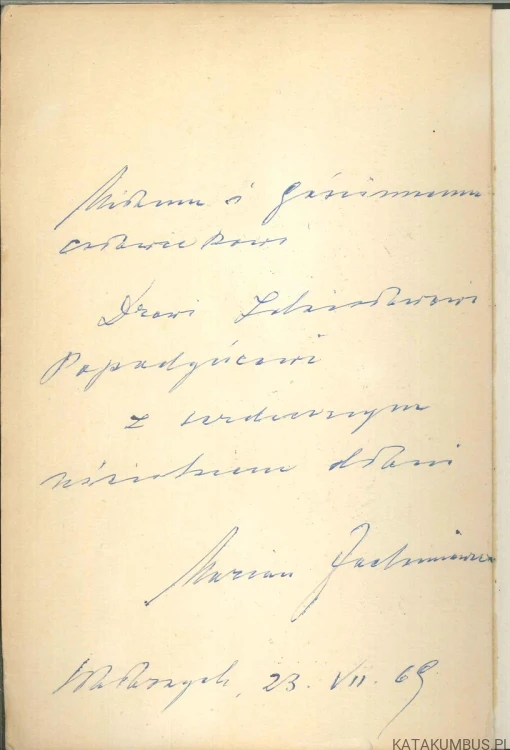 Miłemu i gościnnemu
człowiekowi
Drowi Zdzisławowi
Popadyńcowi
z serdecznym
uściskiem dłoni
Marian Jachimowicz
Wałbrzych, 23. VII. 69
KATAKUMBUS.PL